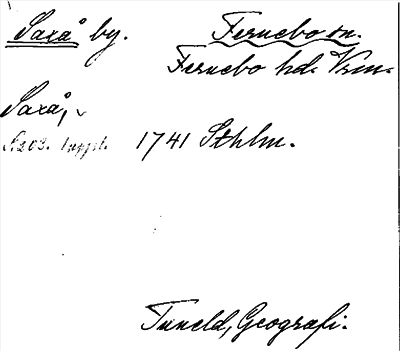 Saxå by. Fernebo sn.
Fernebo hd. Vrm.
Saxå,
S. 203. suppl. 1741 Sthlm.
Tuneld, Geografi.